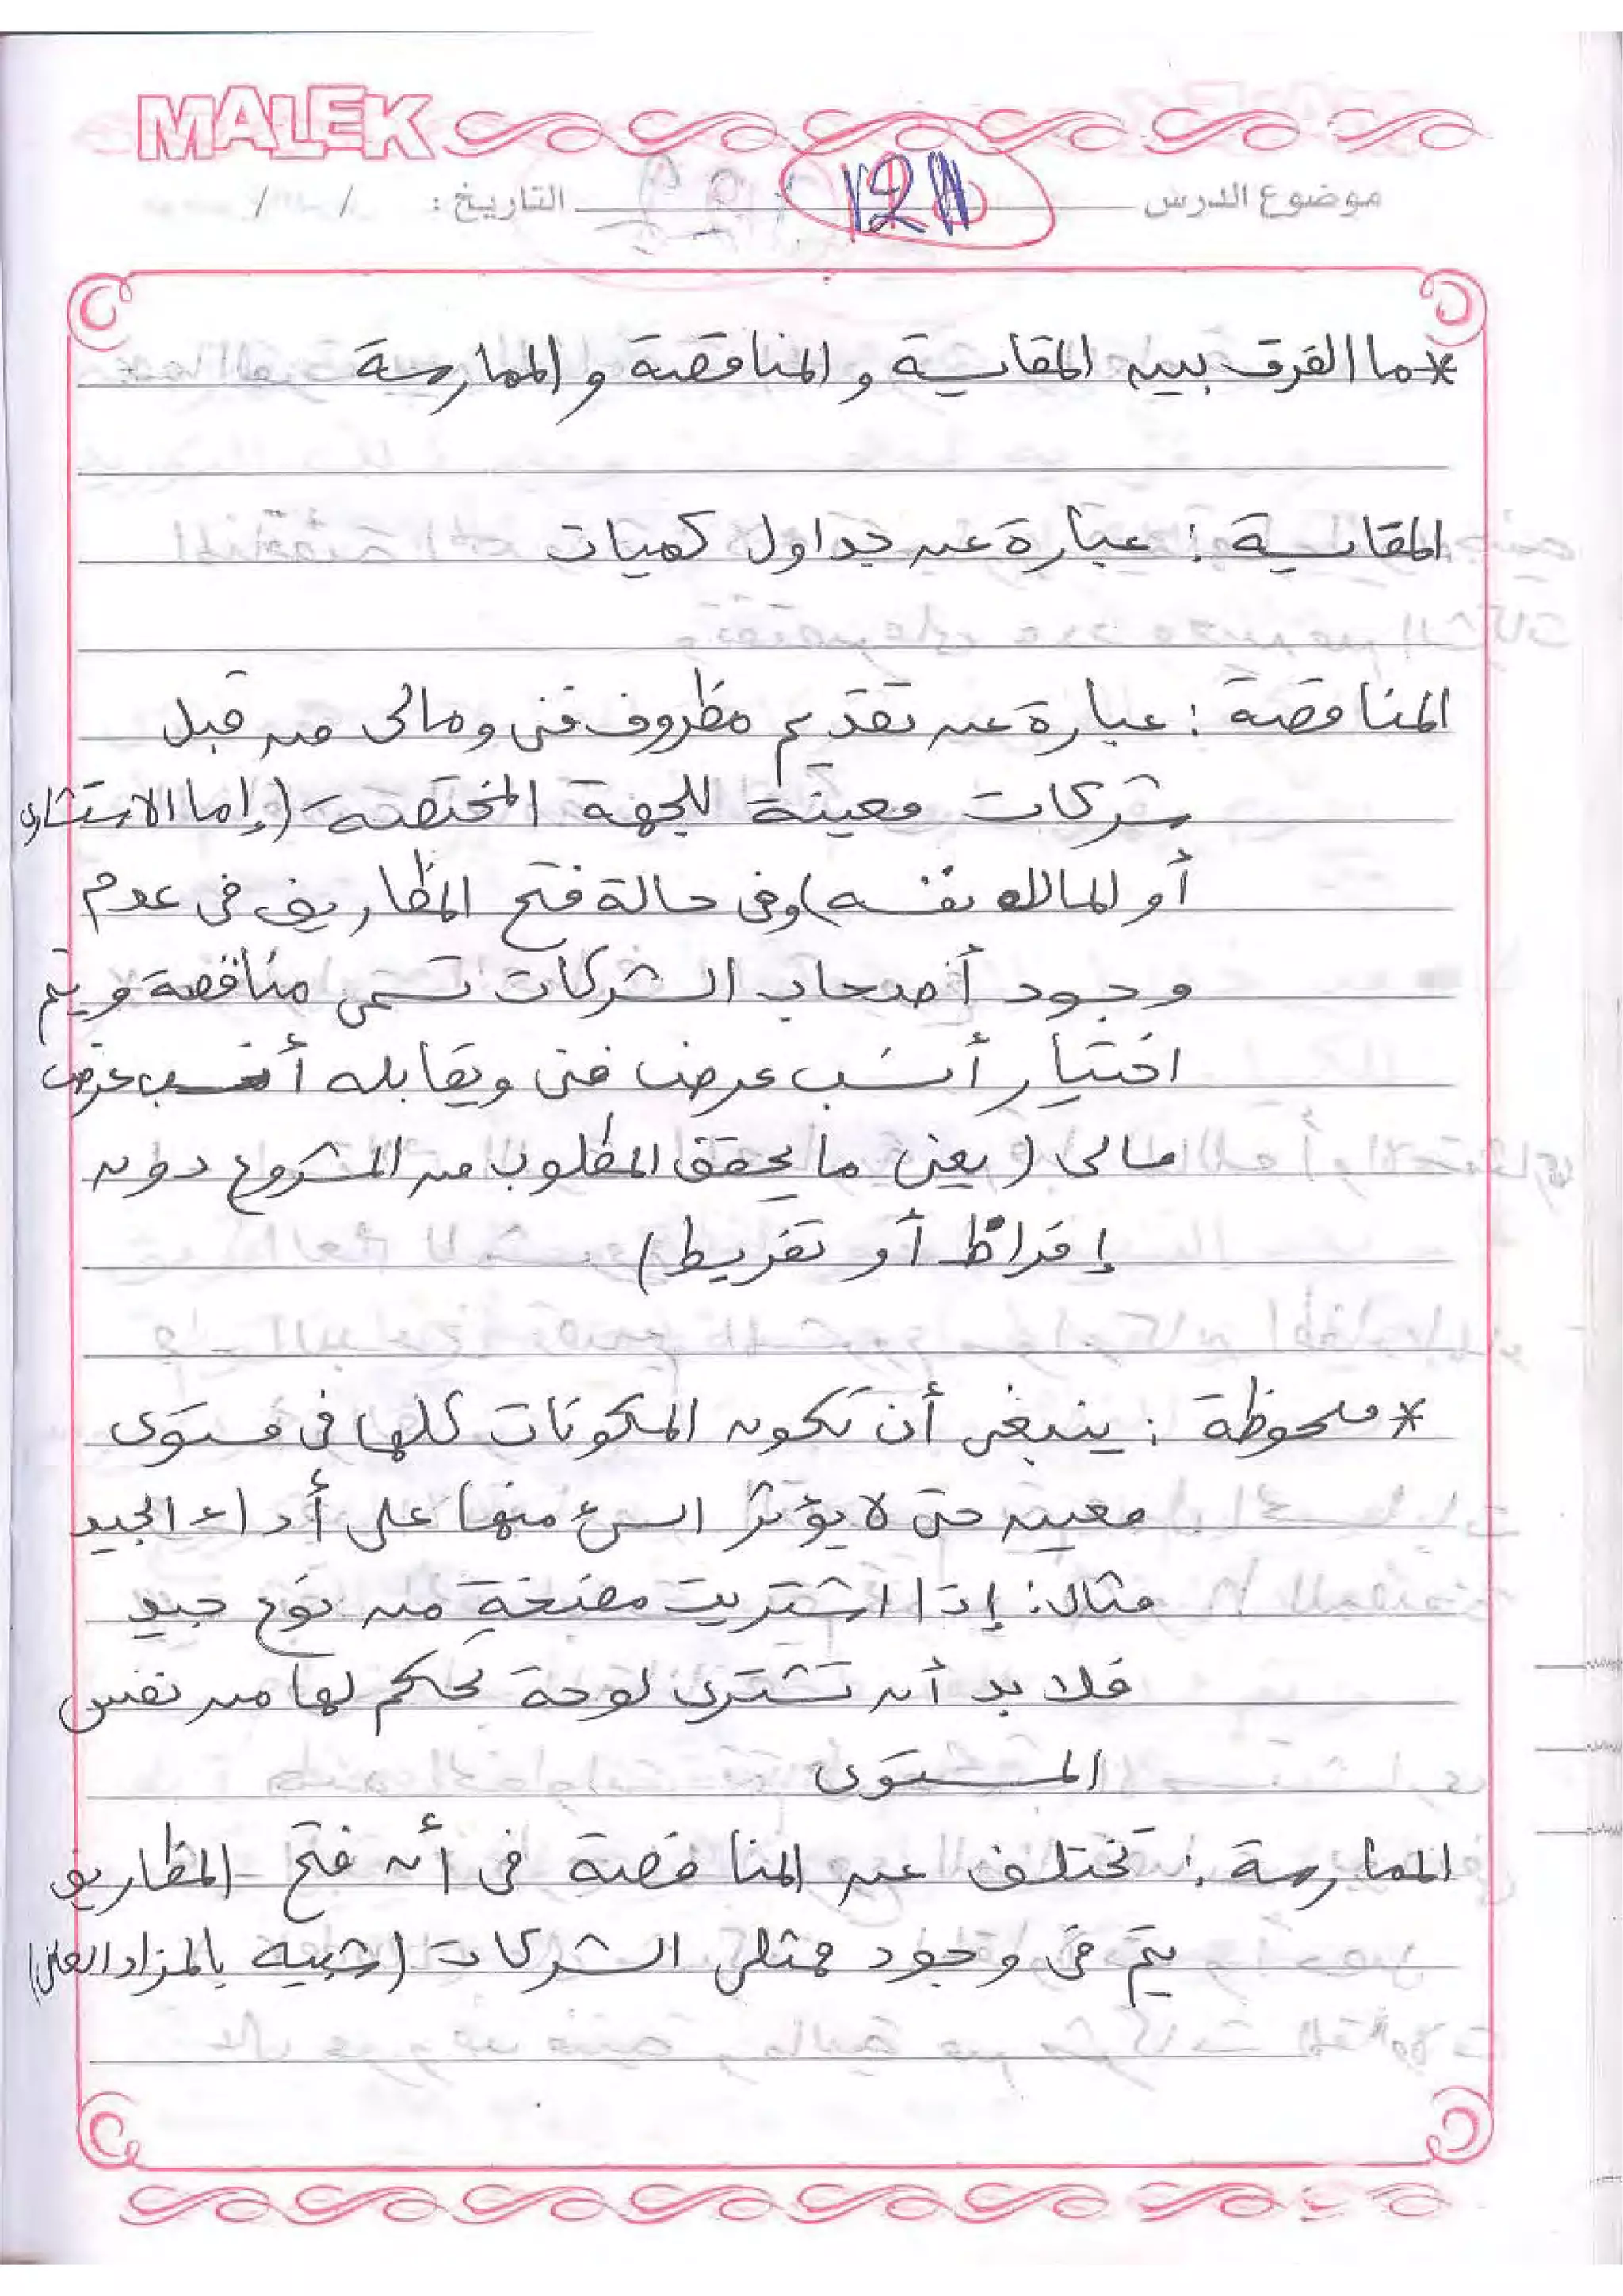 MALEK
موضوع الدرس التاريخ : / /
* ما الفرق بين المقايسة و المناقصة و الممارسة
المقايسة : عبارة عن جداول كميات
المناقصة : عبارة عن تقديم مظروف فنى ومالى من قبل
شركات معينة للجهة المختصة (إما الاستشارى
أو المالك نفسه) وفى حالة فتح المظاريف فى عدم
وجود أصحاب الشركات تسمى مناقصة ويتم
اختيار أنسب عرض فنى ويقابله أنسب عرض
مالى (يعنى ما يحقق المطلوب من المشروع دون
إفراط أو تفريط)
* ملحوظة : ينبغى أن تكون المكونات كلها فى مستوى
معين حتى لا يؤثر السئ منها على أداء الجيد
مثال : إذا اشتريت مضخة من نوع جيد
فلا بد أن تشترى لوحة تحكم لها من نفس
المستوى
الممارسة : تختلف عن المناقصة فى أن فتح المظاريف
يتم فى وجود ممثلى الشركات (شبيه بالمزاد العلنى)